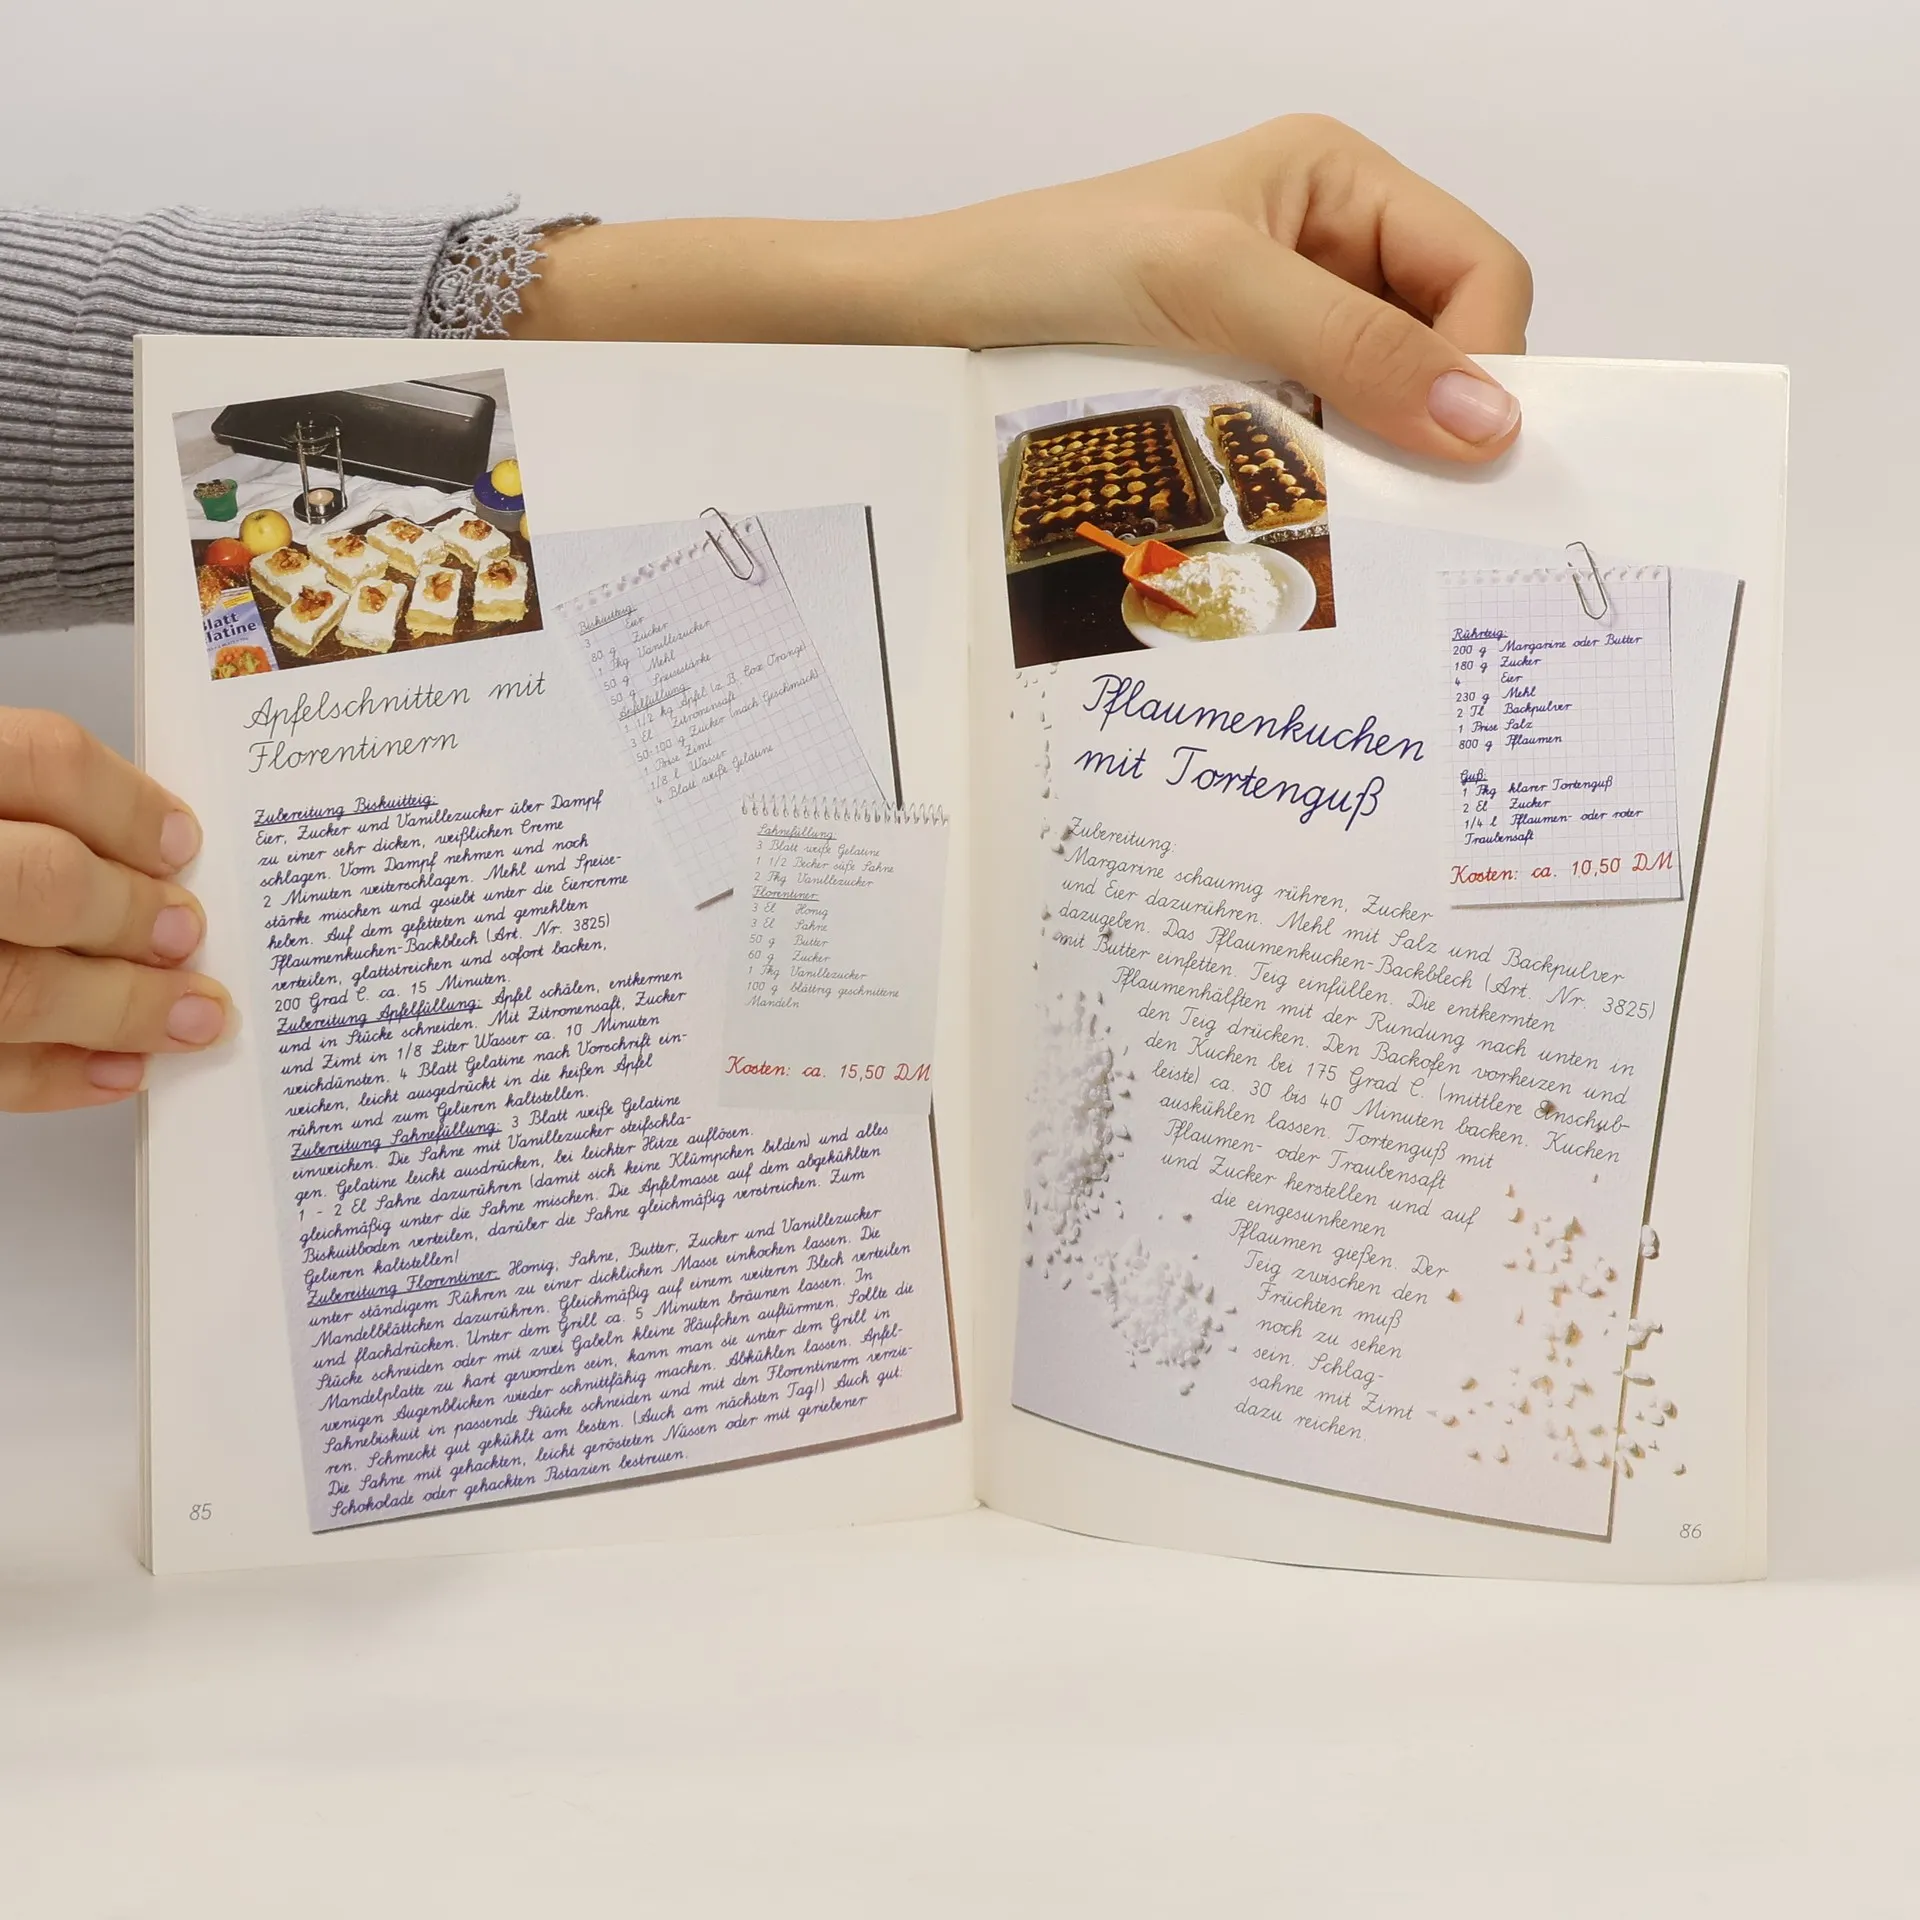 latt
latine
Apfelschnitten mit
Florentinern
Biskuitteig:
3 Eier
80 g Zucker
1 Pkg Vanillezucker
50 g Mehl
50 g Speisestärke
Apfelfüllung:
1 1/2 kg Äpfel (z. B. Cox Orange)
3 El Zitronensaft
50-100 g Zucker (nach Geschmack)
1 Prise Zimt
1/8 l Wasser
4 Blatt weiße Gelatine
Sahnefüllung:
3 Blatt weiße Gelatine
1 1/2 Becher süße Sahne
2 Pkg Vanillezucker
Florentiner:
3 El Honig
3 El Sahne
50 g Butter
60 g Zucker
1 Pkg Vanillezucker
100 g blättrig geschnittene
Mandeln
Kosten: ca. 15,50 DM
Zubereitung Biskuitteig:
Eier, Zucker und Vanillezucker über Dampf
zu einer sehr dicken, weißlichen Creme
schlagen. Vom Dampf nehmen und noch
2 Minuten weiterschlagen. Mehl und Speise-
stärke mischen und gesiebt unter die Eiercreme
heben. Auf dem gefetteten und gemehlten
Pflaumenkuchen-Backblech (Art. Nr. 3825)
verteilen, glattstreichen und sofort backen,
200 Grad C. ca. 15 Minuten.
Zubereitung Apfelfüllung: Äpfel schälen, entkernen
und in Stücke schneiden. Mit Zitronensaft, Zucker
und Zimt in 1/8 Liter Wasser ca. 10 Minuten
weichdünsten. 4 Blatt Gelatine nach Vorschrift ein-
weichen, leicht ausgedrückt in die heißen Äpfel
rühren und zum Gelieren kaltstellen.
Zubereitung Sahnefüllung: 3 Blatt weiße Gelatine
einweichen. Die Sahne mit Vanillezucker steifschla-
gen. Gelatine leicht ausdrücken, bei leichter Hitze auflösen.
1 - 2 El Sahne dazurühren (damit sich keine Klümpchen bilden) und alles
gleichmäßig unter die Sahne mischen. Die Apfelmasse auf dem abgekühlten
Biskuitboden verteilen, darüber die Sahne gleichmäßig verstreichen. Zum
Gelieren kaltstellen!
Zubereitung Florentiner: Honig, Sahne, Butter, Zucker und Vanillezucker
unter ständigem Rühren zu einer dicklichen Masse einkochen lassen. Die
Mandelblättchen dazurühren. Gleichmäßig auf einem weiteren Blech verteilen
und flachdrücken. Unter dem Grill ca. 5 Minuten bräunen lassen. In
Stücke schneiden oder mit zwei Gabeln kleine Häufchen auftürmen. Sollte die
Mandelplatte zu hart geworden sein, kann man sie unter dem Grill in
wenigen Augenblicken wieder schnittfähig machen. Abkühlen lassen. Apfel-
Sahnebiskuit in passende Stücke schneiden und mit den Florentinern verzie-
ren. Schmeckt gut gekühlt am besten. (Auch am nächsten Tag!) Auch gut:
Die Sahne mit gehackten, leicht gerösteten Nüssen oder mit geriebener
Schokolade oder gehackten Pistazien bestreuen.
85
Pflaumenkuchen
mit Tortenguß
Rührteig:
200 g Margarine oder Butter
180 g Zucker
4 Eier
230 g Mehl
2 Tl Backpulver
1 Prise Salz
800 g Pflaumen
Guß:
1 Pkg klarer Tortenguß
2 El Zucker
1/4 l Pflaumen- oder roter
Traubensaft
Kosten: ca. 10,50 DM
Zubereitung:
Margarine schaumig rühren, Zucker
und Eier dazurühren. Mehl mit Salz und Backpulver
dazugeben. Das Pflaumenkuchen-Backblech (Art. Nr. 3825)
mit Butter einfetten. Teig einfüllen. Die entkernten
Pflaumenhälften mit der Rundung nach unten in
den Teig drücken. Den Backofen vorheizen und
den Kuchen bei 175 Grad C. (mittlere Einschub-
leiste) ca. 30 bis 40 Minuten backen. Kuchen
auskühlen lassen. Tortenguß mit
Pflaumen- oder Traubensaft
und Zucker herstellen und auf
die eingesunkenen
Pflaumen gießen. Der
Teig zwischen den
Früchten muß
noch zu sehen
sein. Schlag-
sahne mit Zimt
dazu reichen.
86